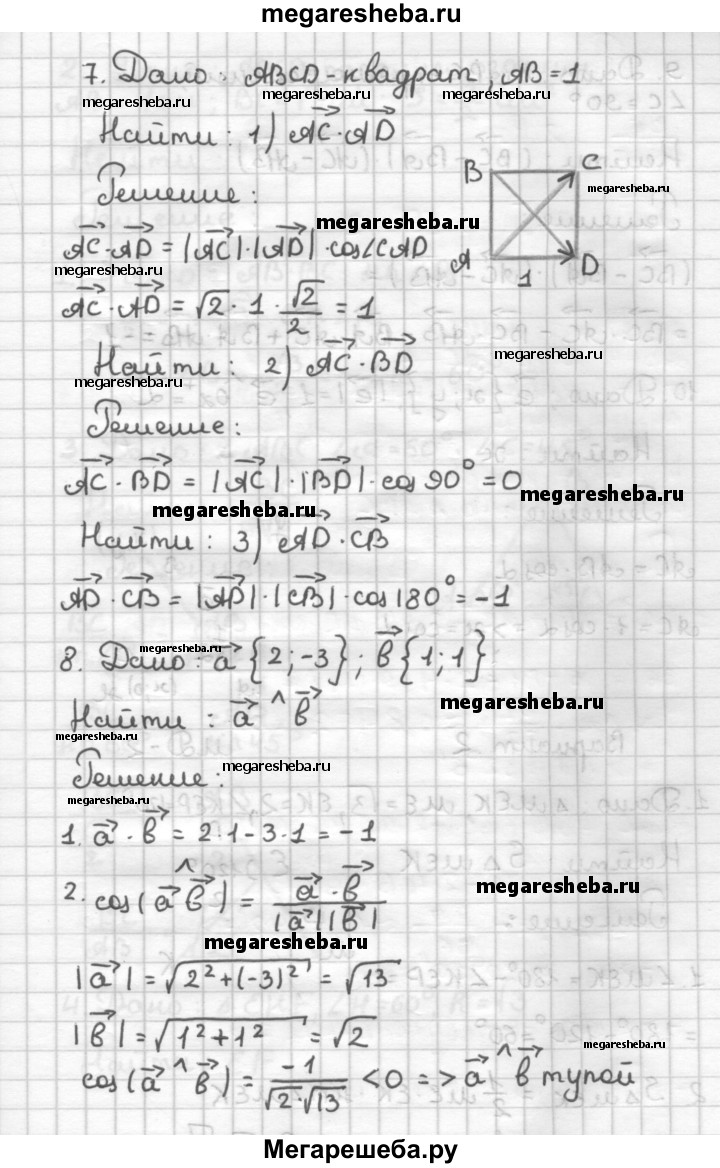 megaresheba.ru
7. Дано: ABCD - квадрат, AB = 1
megaresheba.ru megaresheba.ru megaresheba.ru
Найти: 1) $\overrightarrow{AC} \cdot \overrightarrow{AD}$
B C
megaresheba.ru
Решение:
megaresheba.ru
$\overrightarrow{AC} \cdot \overrightarrow{AD} = |\overrightarrow{AC}| \cdot |\overrightarrow{AD}| \cdot \cos \angle CAD$
A 1 D
megaresheba.ru
$\overrightarrow{AC} \cdot \overrightarrow{AD} = \sqrt{2} \cdot 1 \cdot \frac{\sqrt{2}}{2} = 1$
Найти: 2) $\overrightarrow{AC} \cdot \overrightarrow{BD}$
megaresheba.ru
megaresheba.ru
Решение:
$\overrightarrow{AC} \cdot \overrightarrow{BD} = |\overrightarrow{AC}| \cdot |\overrightarrow{BD}| \cdot \cos 90° = 0$
megaresheba.ru
megaresheba.ru
Найти: 3) $\overrightarrow{AD} \cdot \overrightarrow{CB}$
$\overrightarrow{AD} \cdot \overrightarrow{CB} = |\overrightarrow{AD}| \cdot |\overrightarrow{CB}| \cdot \cos 180° = -1$
megaresheba.ru
8. Дано: $\vec{a}$ {2; -3}; $\vec{b}$ {1; 1}
megaresheba.ru
Найти: $\vec{a} \wedge \vec{b}$
megaresheba.ru
megaresheba.ru
Решение:
megaresheba.ru
1. $\vec{a} \cdot \vec{b} = 2 \cdot 1 - 3 \cdot 1 = -1$
2. $\cos(\vec{a} \wedge \vec{b}) = \frac{\vec{a} \cdot \vec{b}}{|\vec{a}||\vec{b}|}$
megaresheba.ru
megaresheba.ru
$|\vec{a}| = \sqrt{2^2 + (-3)^2} = \sqrt{13}$
$|\vec{b}| = \sqrt{1^2 + 1^2} = \sqrt{2}$
megaresheba.ru
$\cos(\vec{a} \wedge \vec{b}) = \frac{-1}{\sqrt{2} \cdot \sqrt{13}} < 0 => \vec{a} \wedge \vec{b}$ тупой
Мегарешеба.ру